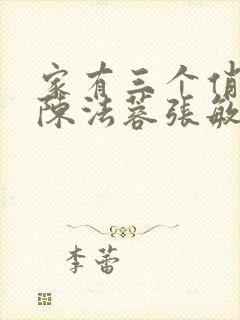 家有三个俏
陈法蓉张敏
李蕾